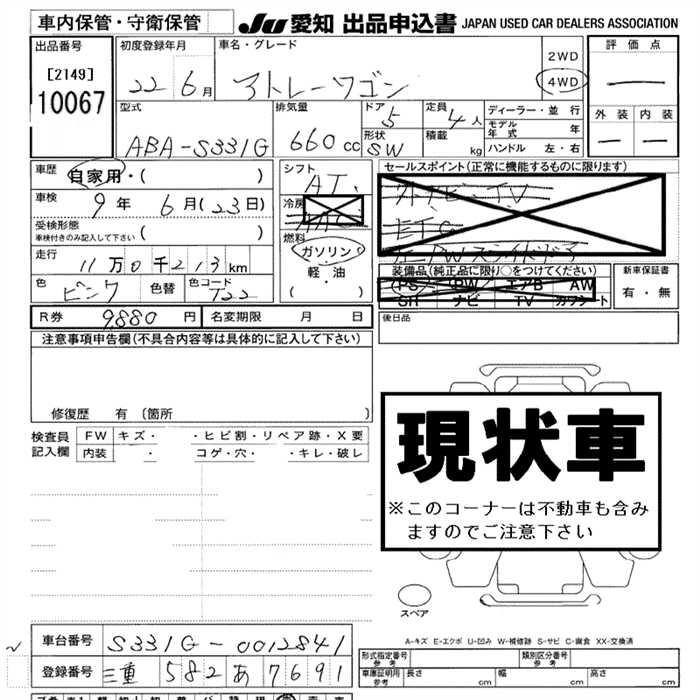 車内保管・守衛保管 JU 愛知 出品申込書 JAPAN USED CAR DEALERS ASSOCIATION
出品番号 初度登録年月 車名・グレード 評価点
[2149] 22 6月 アトレーワゴン 2WD
10067 4WD
型式 排気量 ドア 定員 ディーラー・並行 外装 内装
ABA-S331G 660cc 5 4人 モデル年式 年
形状 SW 積載 kg ハンドル 左・右
車歴 自家用・( ) シフト AT セールスポイント(正常に機能するものに限ります)
車検 9年 6月(23日) 冷房 AAC TV
受検形態 ETC
車検付きのみ記入して下さい ( ) 燃料
走行 11万0千213km ガソリン・ 装備品(純正品に限り○をつけてください) 新車保証書
色 ピンク 色替 色コード T22 軽・油 (PS) (PW) エアB AW 有・無
( ) SR ナビ TV カワシート
R券 9880円 名変期限 月 日 後日品
注意事項申告欄(不具合内容等は具体的に記入して下さい)
修復歴 有 [箇所 ]
検査員 FW キズ・ ・ヒビ割・リペア跡・X要
記入欄 内装 ・ コゲ・穴・ ・キレ・破レ
現状車
※このコーナーは不動車も含み
ますのでご注意下さい
スペア
A-キズ E-エクボ U-凹み W-補修跡 S-サビ C-腐食 XX-交換済
車台番号 S331G-0012841 形式指定番号 参考 類別区分番号 参考
登録番号 三重 582 あ 7691 車庫証明用 参考 長さ cm 幅 cm 高さ cm